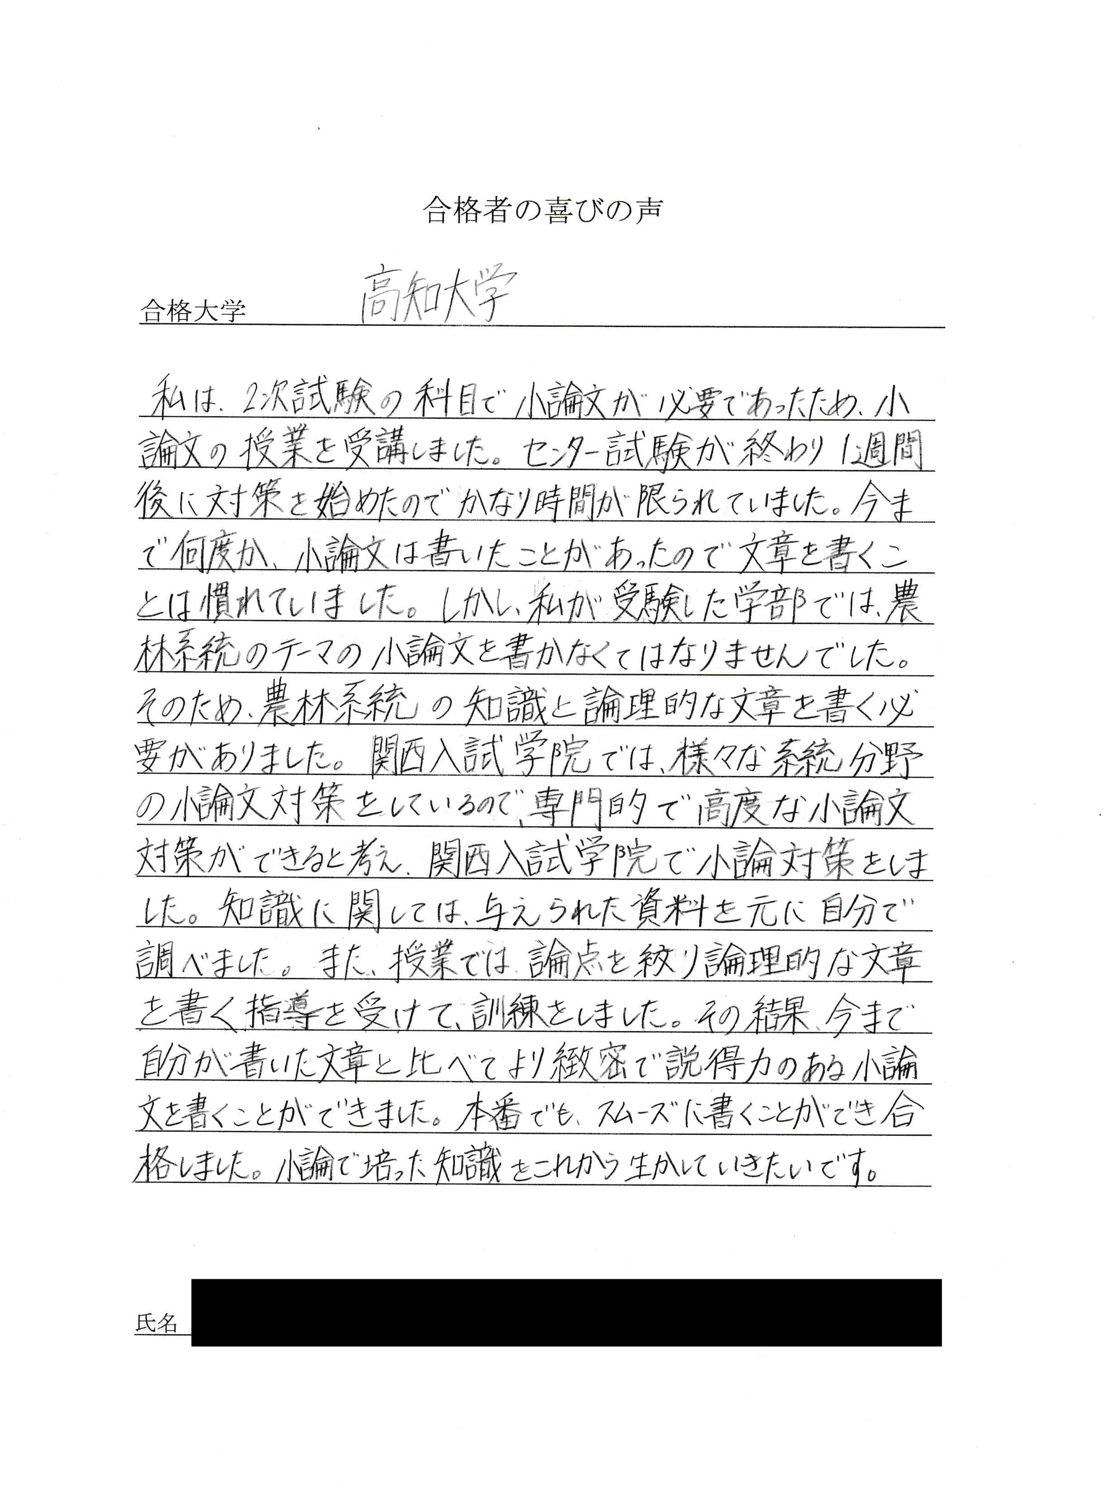 合格者の喜びの声
合格大学 高知大学
私は、2次試験の科目で小論文が必要であったため、小
論文の授業を受講しました。センター試験が終わり1週間
後に対策を始めたのでかなり時間が限られていました。今ま
で何度か、小論文は書いたことがあったので文章を書くこ
とは慣れていました。しかし、私が受験した学部では、農
林系統のテーマの小論文を書かなくてはなりませんでした。
そのため、農林系統の知識と論理的な文章を書く必
要がありました。関西入試学院では、様々な系統分野
の小論文対策をしているので、専門的で高度な小論文
対策ができると考え、関西入試学院で小論対策をしま
した。知識に関しては、与えられた資料を元に自分で
調べました。また、授業では、論点を絞り論理的な文章
を書く指導を受けて、訓練をしました。その結果、今まで
自分が書いた文章と比べてより緻密で説得力のある小論
文を書くことができました。本番でも、スムーズに書くことができ合
格しました。小論で培った知識をこれから生かしていきたいです。
氏名